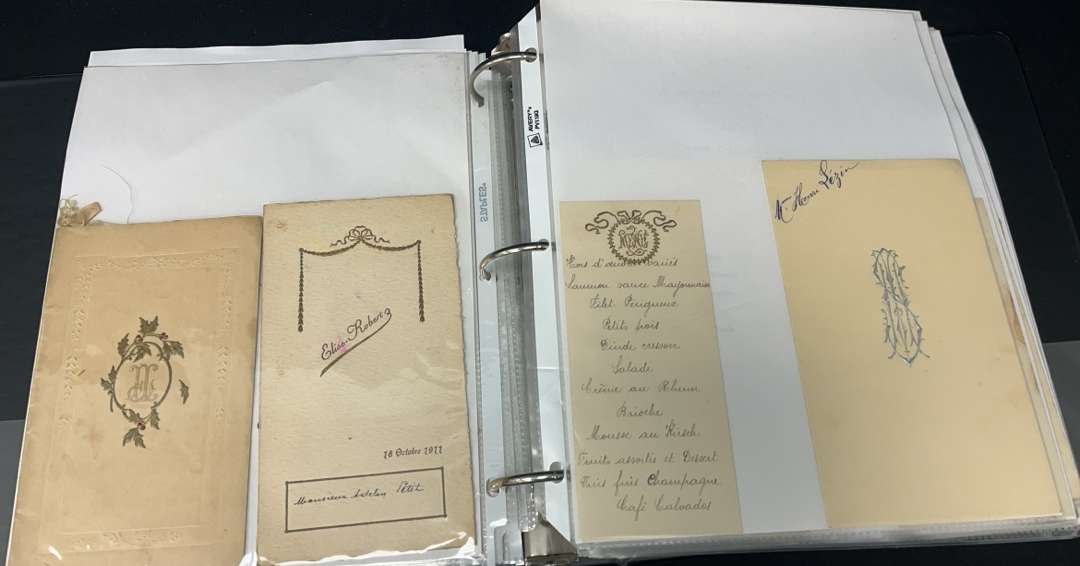 Elise-Robert
18 Octobre 1911
Monsieur Petit
STAPLES
AVERY®
Hors d'œuvres variés
Saumon sauce Mayonnaise
Filet Périgueux
Petits pois
Dinde cresson
Salade
Crème au Rhum
Brioche
Mousse au Kirsch
Fruits assortis et Dessert
Vins fins Champagne
Café Calvados
Mr Henri Lezin